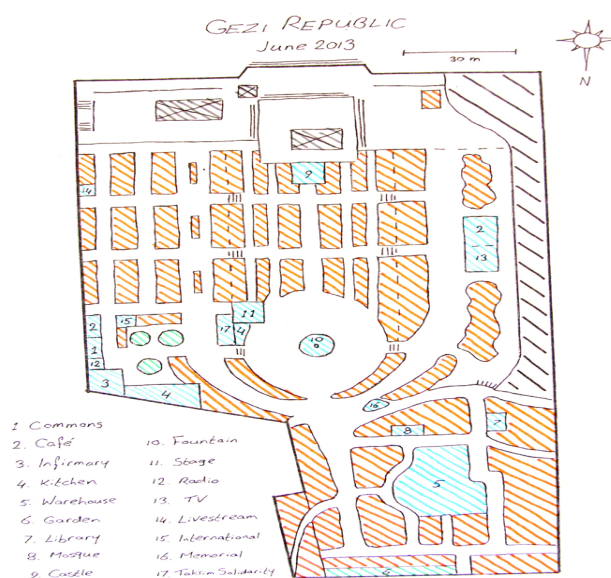 GEZI REPUBLIC
June 2013
30 m
N
9
14
2
13
11
15
17
4
10
2
1
12
3
4
16
8
7
5
4
1 Commons
2. Café
3. Infirmary
4. Kitchen
5. Warehouse
6. Garden
7. Library
8. Mosque
9. Castle
10. Fountain
11. Stage
12. Radio
13. TV
14. Livestream
15. International
16. Memorial
17. Taksim Solidarity